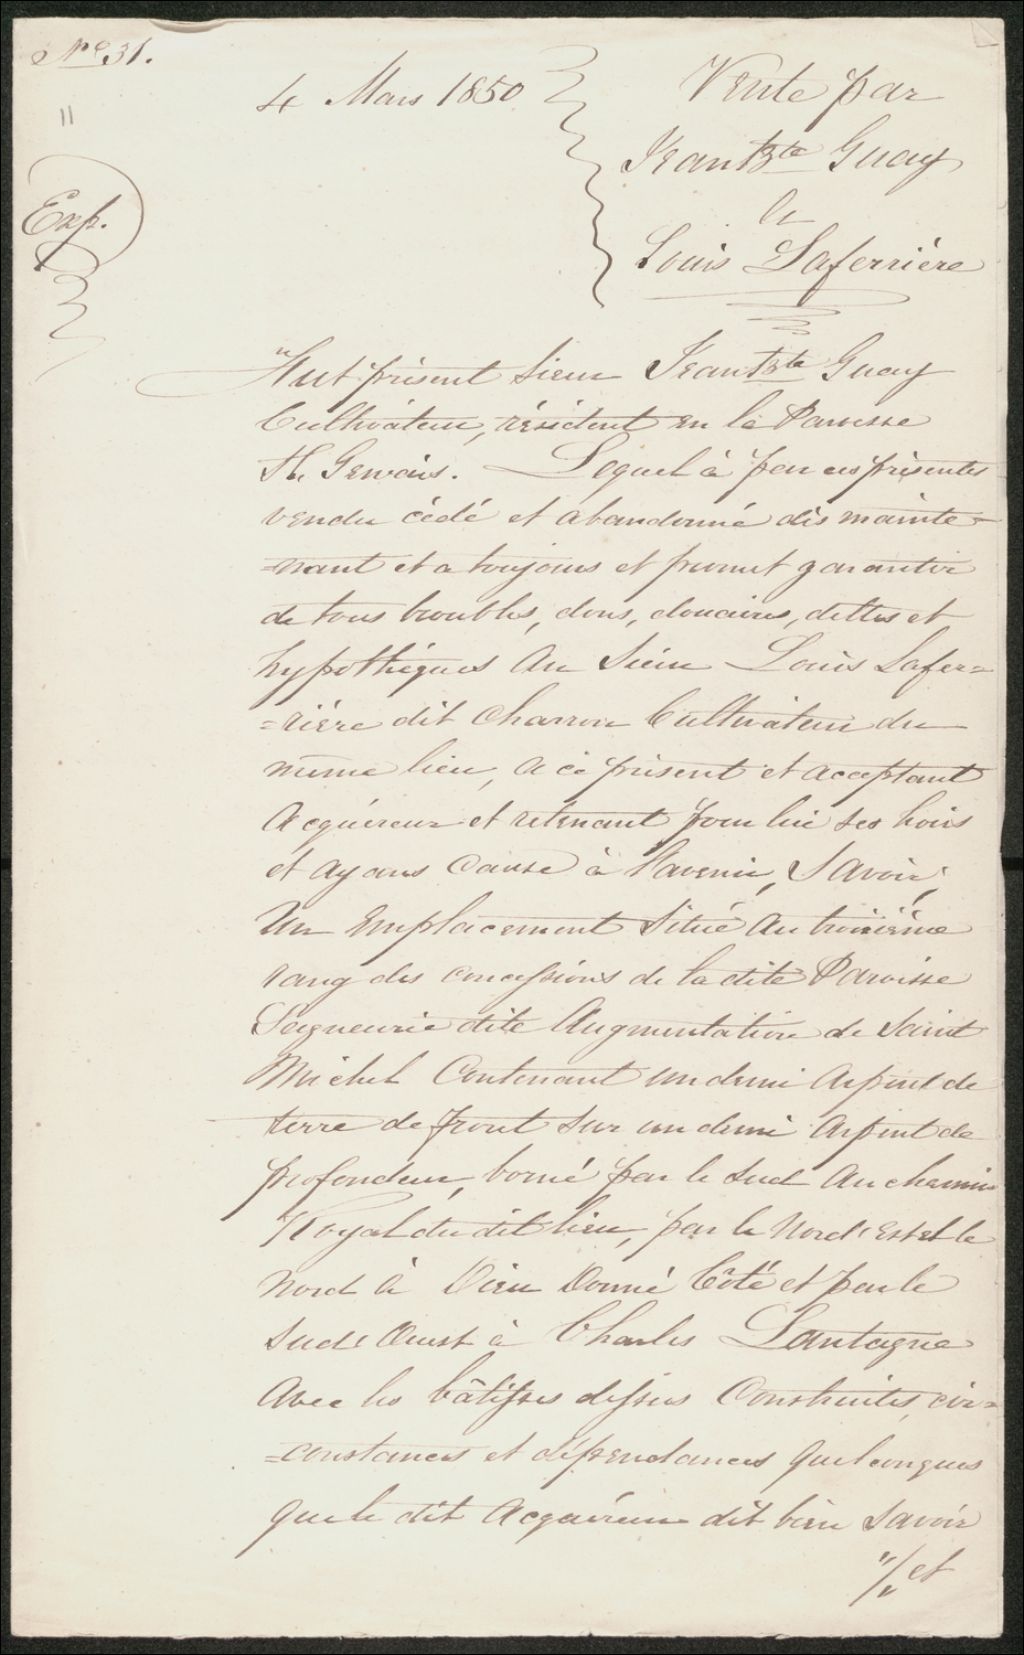 No 31.
4 Mars 1850
Vente par
Jean Bte Guay
à
Louis Laferrière
Exp.
Fut présent Sieur Jean Bte Guay
Cultivateur, résident en la Paroisse
St. Gervais. Lequel à par ces présentes
vendu cédé et abandonné dès mainte=
=nant et a toujours et promet garantir
de tous troubles, dons, douaires, dettes et
hypothèques Au Sieur Louis Lafer=
=rière dit Charron Cultivateur du
même lieu, a ce présent et acceptant
Acquéreur et retenant pour lui ses hoirs
et ayans cause à l'avenir, Savoir;
Un Emplacement Situé Au troisième
rang des concessions de la dite Paroisse
Seigneurie dite Augmentation de Saint
Michel Contenant un demi Arpent de
terre de front sur un demi Arpent de
profondeur, borné par le Sud Au chemin
Royal du dit lieu, par le Nord Est et le
Nord à Dieu Donné Côté et par le
Sud Ouest à Charles Lantagne
Avec les bâtisses dessus Construites, cir=
=constances et dépendances quelconques
que le dit Acquéreur dit bien Savoir
"/" et